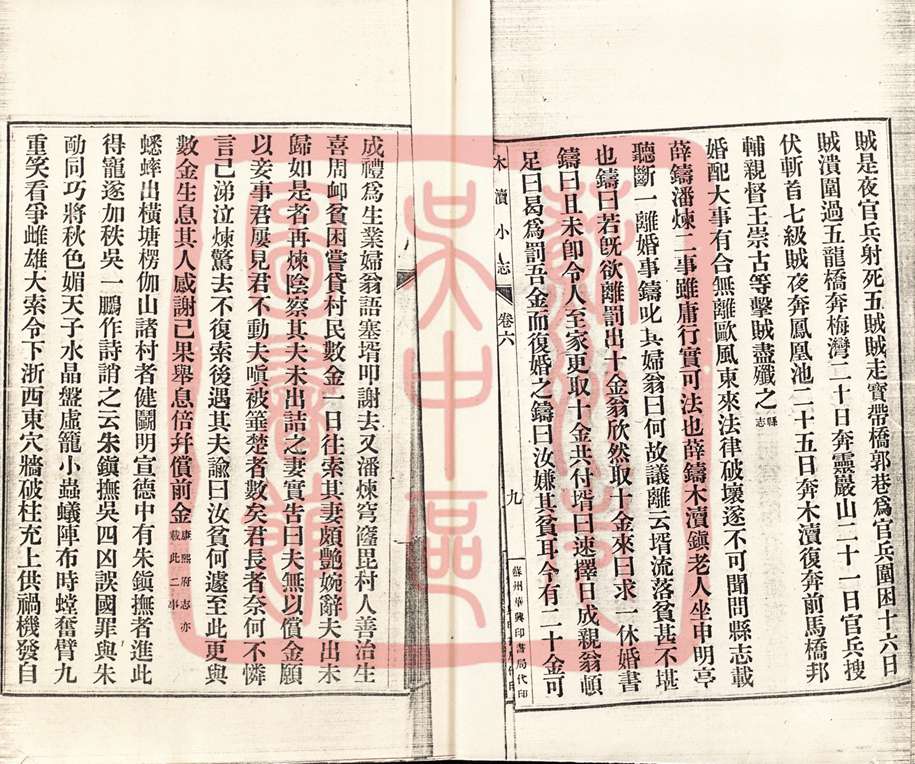 賊是夜官兵射死五賊賊走寶帶橋郭巷爲官兵圍困十六日
賊潰圍過五龍橋奔梅灣二十日奔靈巖山二十一日官兵搜
伏斬首七級賊夜奔鳳凰池二十五日奔木瀆復奔前馬橋邦
輔親督王崇古等擊賊盡殲之縣志
婚配大事有合無離歐風東來法律破壞遂不可聞問縣志載
薛鑄潘煉二事雖庸行實可法也薛鑄木瀆鎭老人坐申明亭
聽斷一離婚事鑄叱其婦翁曰何故議離云壻流落貧甚不堪
也鑄曰若旣欲離罰出十金翁欣然取十金來曰求一休婚書
鑄曰且未卽令人至家更取十金共付壻曰速擇日成親翁頓
足曰曷爲罰吾金而復婚之鑄曰汝嫌其貧耳今有二十金可
木瀆小志
卷六
九
蘇州華興印書局代印
成禮爲生業婦翁語塞壻叩謝去又潘煉穹窿毘村人善治生
喜周卹貧困嘗貸村民數金一日往索其妻頗艷婉辭夫出未
歸如是者再煉陰察其夫未出詰之妻實告曰夫無以償金願
以妾事君屢見君不動夫嗔被箠楚者數矣君長者奈何不憐
言已涕泣煉驚去不復索後遇其夫諭曰汝貧何遽至此更與
數金生息其人感謝已果舉息倍幷償前金康熙府志亦載此二事
蟋蟀出橫塘楞伽山諸村者健鬭明宣德中有朱鎭撫者進此
得寵遂加秩吳一鵬作詩誚之云朱鎭撫吳四凶誤國罪與朱
勔同巧將秋色媚天子水晶盤虛籠小蟲蟻陣布時螳奮臂九
重笑看爭雌雄大索令下浙西東穴牆破柱充上供禍機發自